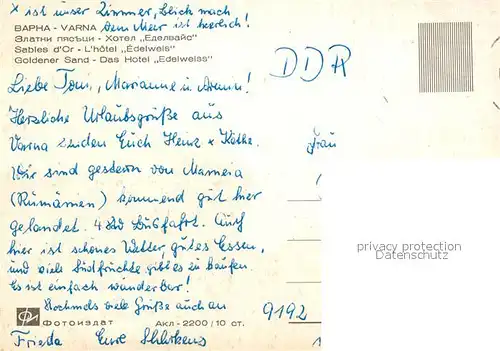 x ist unser Zimmer, gleich nach
dem Meer ist herrlich!
ВАРНА - VARNA
Златни пясъци - Хотел „Еделвайс"
Sables d'Or - L'hôtel „Edelweis"
Goldener Sand - Das Hotel „Edelweiss"
DDR
Liebe Toni, Marianne u. Armin!
Herzliche Urlaubsgrüße aus
Varna senden Euch Heinz u. Käthe.
Frau
Wir sind gestern von Mamaia
(Rumänien) kommend gut hier
gelandet. 4 Std Busfahrt. Auch
hier ist schönes Wetter, gutes Essen,
und viele Südfrüchte gibt es zu kaufen.
Es ist einfach wunderbar!
privacy protection
Datenschutz www.ansichtskartenversand.com
Nochmals viele Grüße auch an
9192
Фотоиздат Акл - 2200/10 ст.
Frieda Eure